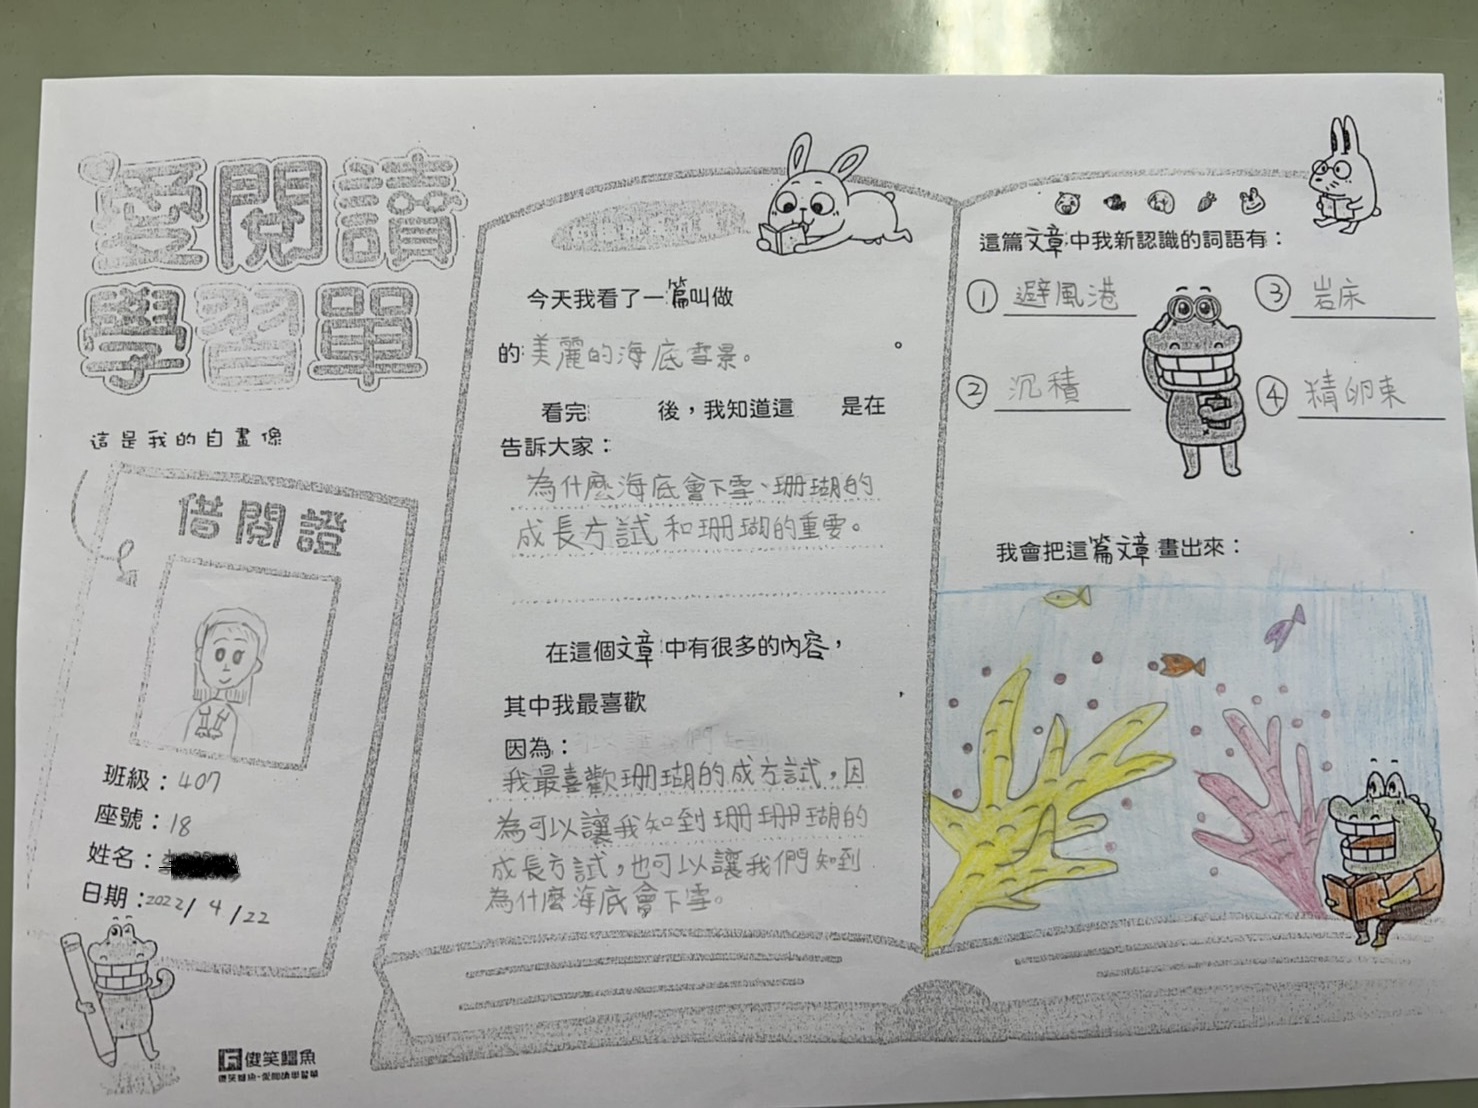 愛閱讀
學習單
這是我的自畫像
借閱證
班級：407
座號：18
姓名：
日期：2022/4/22
傻笑鱷魚
今天我看了一篇叫做
的美麗的海底雪景。 。
看完 後，我知道這 是在
告訴大家：
為什麼海底會下雪、珊瑚的
成長方試和珊瑚的重要。
在這個文章中有很多的內容，
其中我最喜歡 ，
因為：
我最喜歡珊瑚的成方試，因
為可以讓我知到珊珊瑚的
成長方試，也可以讓我們知到
為什麼海底會下雪。
這篇文章中我新認識的詞語有：
① 避風港
③ 岩床
② 沉積
④ 精卵束
我會把這篇文章畫出來：